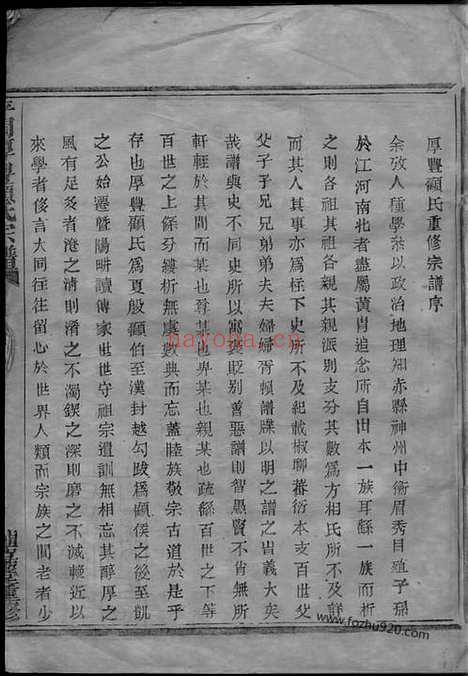 厚豐顧氏重修宗譜序
余攷人種學叅以政治地理知赤縣神州中衝眉秀目殖子孫
於江河南北者盡屬黃胄追忿所自出本一族耳繇一族而析
之則各祖其祖各親其親派別支分其數爲方相氏所不及詳
而其人其事亦爲柱下史所不及紀載椒聊蕃衍本支百世父
父子子兄兄弟弟夫夫婦婦胥賴譜牒以明之譜之旹義大矣
哉譜與史不同史所以寓褒貶别善惡譜則智愚賢不肖無所
軒輊於其間而某也尊某也卑某也親某也疏繇百世之下等
百世之上條分縷析無虞數典而忘蓋睦族敬宗古道於是乎
存也厚豐顧氏爲夏殷顧伯至漢封越勾踐爲顧侯之後至凱
之公始遷暨陽畊讀傳家世世守祖宗遺訓無相忘其醇厚之
風有足爻者淹之清則濟之不濁鍥之深則磨之不滅輓近以
來學者侈言大同往往留心於世界人類而宗族之間老者少
宗譜
重修
hayona.com
www.fozhu920.com